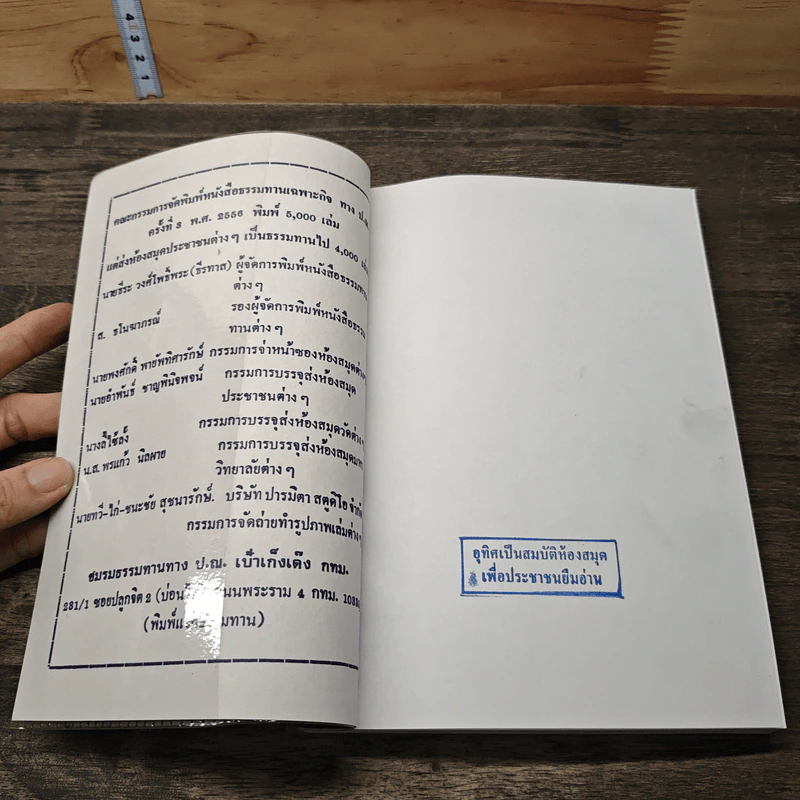 4 3 2 1
คณะกรรมการจัดพิมพ์หนังสือธรรมทานเฉพาะกิจ ทาง ป.ณ.
ครั้งที่ 3 พ.ศ. 2556 พิมพ์ 5,000 เล่ม
แด่ส่งห้องสมุดประชาชนต่างๆ เป็นธรรมทานไป 4,000 เล่ม
นายธีระ วงศ์โพธิ์พระ (ธีรทาส) ผู้จัดการพิมพ์หนังสือธรรมทาน
ต่างๆ
ส. ธโนฆาภรณ์ รองผู้จัดการพิมพ์หนังสือธรรม
ทานต่างๆ
นายพงศักดิ์ พายัพทิศารักษ์ กรรมการจ่าหน้าซองห้องสมุดต่างๆ
นายอำพันธ์ ชาญพินิจพจน์ กรรมการบรรจุส่งห้องสมุด
ประชาชนต่างๆ
นางลี่ใช้ลั้ง กรรมการบรรจุส่งห้องสมุดวัดต่างๆ
น.ส. พรแก้ว นิลผาย กรรมการบรรจุส่งห้องสมุด
วิทยาลัยต่างๆ
นายทวี-ไก่-ชนะชัย สุชนารักษ์. บริษัท ปารมิตา สตูดิโอ จำกัด
กรรมการจัดถ่ายทำรูปภาพเล่มต่างๆ
ชมรมธรรมทานทาง ป.ณ. เป้าเก็งเต๊ง กทม.
231/1 ซอยปลูกจิต 2 (บ่อน พระราม 4 กทม.
(พิมพ์ ทาน)
อุทิศเป็นสมบัติห้องสมุด
เพื่อประชาชนยืมอ่าน